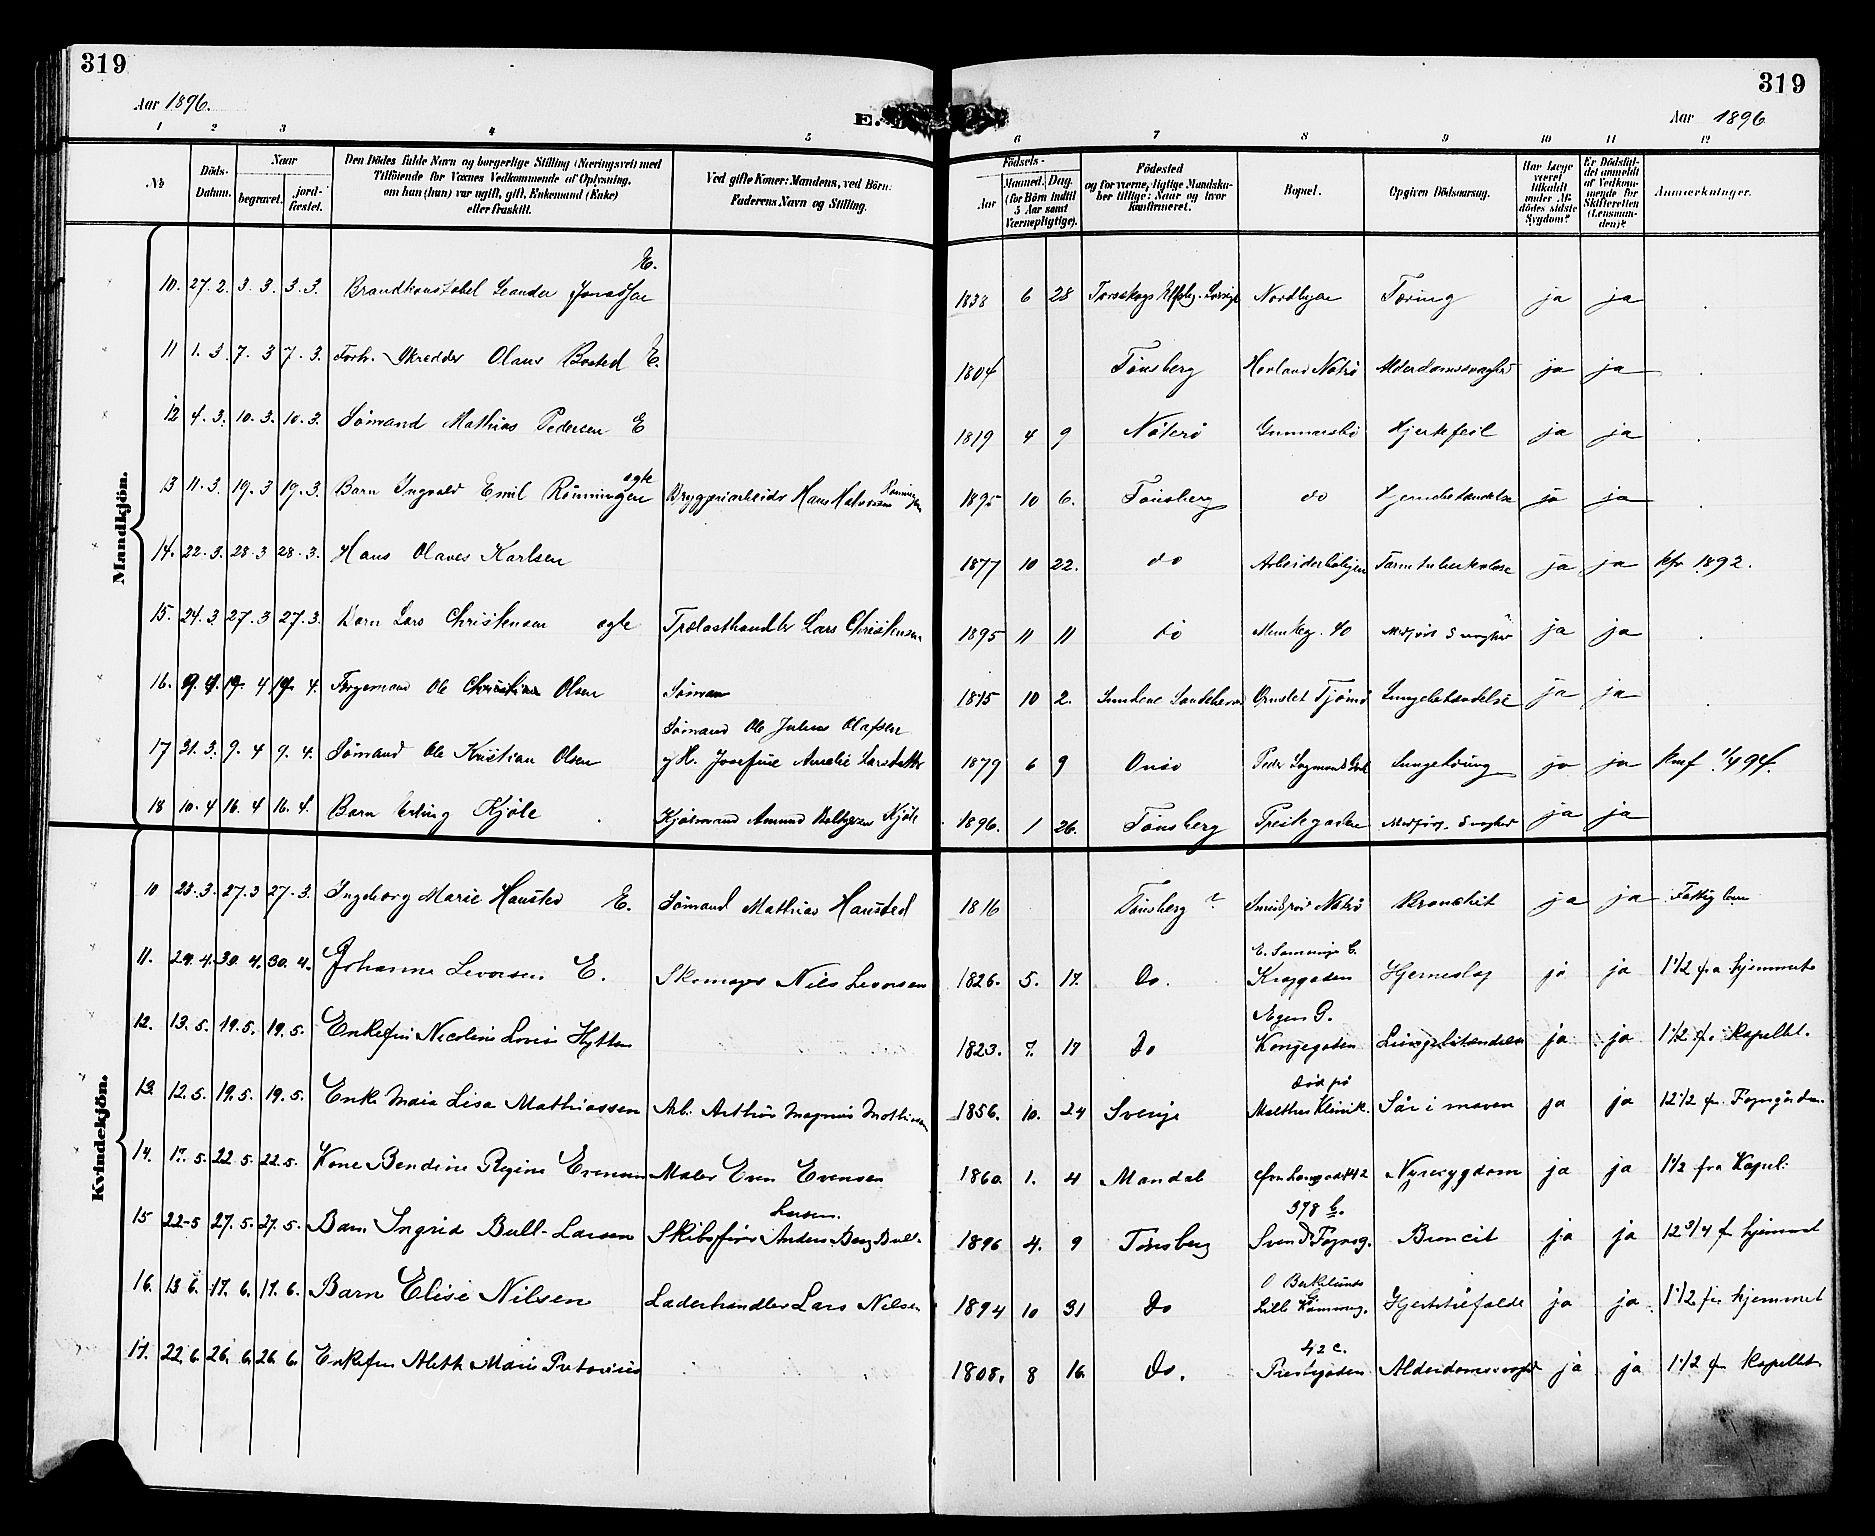 319
319
Aar 1896.
E.
Aar 1896
1 2 3 4 5 6 7 8 9 10 11 12
No
Döds-Datum.
Naar
begravet.
jord-fæstet.
Den Dödes fulde Navn og borgerlige Stilling (Næringsvei) med
Tilföiende for Voxnes Vedkommende af Oplysning,
om han (hun) var ugift, gift, Enkemand (Enke)
eller fraskilt.
Ved gifte Koner: Mandens, ved Börn:
Faderens Navn og Stilling.
Födsels-
Aar
Maaned. Dag.
(for Börn indtil
5 Aar samt
Værnepligtige).
Födested
og for værnepligtige Mandska-
ber tillige: Naar og hvor
konfirmeret.
Bopæl.
Opgiven Dödsaarsag.
Har Læge
været
tilkaldt
under Af-
dödes sidste
Sygdom?
Er Dödsfal-
det anmeldt
af Vedkom-
mende for
Skifteretten
(Lensman-
den)?
Anmærkninger.
Mandkjön.
10. 27. 2. 3. 3. 3. 3. Brandkonstabel Leander E. 1838 6 28 Nordbyen Tæring ja ja
11 1. 3 7. 3 7. 3. Forh. Skrædder Olaus Bosted E. 1804 Tönsberg Nøtrø ja ja
12 4. 3. 10. 3. 10. 3. Sömand Mathias Pedersen E 1819 4 9 Nöterö Hjertefeil ja ja
13 11. 3. 19. 3 19. 3. Barn Ingvald Emil Rönningen ægte Bryggeriarbeider Hans Rönningen 1895 10 6. Tönsberg do ja ja
14. 22. 3. 28. 3 28. 3. Hans Olaves Karlsen 1877 10 22. do Tarmtuberkulose ja ja kfr 1892.
15. 24. 3 27. 3 27. 3. Barn Lars Christensen ægte Trælasthandler Lars Christensen 1895 11 11 do Munkeg. 40 Medfödt Svaghed ja ja
16. 9. 4. 19. 4 19. 4. Ole Christian Olsen Sömand 1875 10 2. Tjömö Lungebetændelse ja ja
17 31. 3. 9. 4 9. 4. Sömand Ole Kristian Olsen Sömand Ole Julius Olafsen
og H. Josefine Amalie Larsdatter 1879 6 9 Onsö ja ja
18 10. 4 16. 4 16. 4. Barn Erling Kjöle Kjøle 1896. 1 26. Tönsberg Medfödt Svaghed ja ja
Kvindekjön.
10 23. 3. 27. 3 27. 3. Ingeborg Marie Hansted E. Sömand Mathias Hansted 1816 Tönsberg ? Nötrö Bronchit ja ja
11. 24. 4. 30. 4. 30. 4. Johanne Levorsen E. Skomager Nils Levorsen 1826. 5. 17. Do. Hjerneslag ja ja 1 1/2 fra hjemmet
12. 13. 5. 19. 5. 19. 5. Enkefru Nicoline Lovise 1823. 7. 17 Do Kongegaden Lungebetændelse ja ja 1 1/2 fr. Kapellet.
13. 12. 5. 19. 5. 19. 5. Enke Maia Lisa Mathiassen Arb. Arthur Magnus Mathiassen 1856. 10. 24 Sverige död på
Malthes Klinik. Sår i maven ja ja 12 1/2
14. 17. 5. 22. 5. 22. 5. Kone Bendine Regine Evensen Maler Even Evensen 1860. 1. 4 Mandal Nyresygdom ja ja 1 1/2 fra Kapel.
15 22-5 27. 5. 27. 5. Barn Ingrid Bull-Larsen Skibsförer Anders Berg Bull-
Larsen. 1896 4. 9 Tönsberg 378 b. Broncit ja ja 12 3/4 fr hjemmet
16. 13 6. 17. 6. 17. 6. Barn Elise Nilsen Læderhandler Lars Nilsen 1894 10 31 Do ja ja 1 1/2 fr hjemmet
17. 22. 6. 26. 6. 26. 6. Enkefru Aleth Marie 1808. 8 16. Do. 42 c.
Prestegaden Alderdomssvaghed ja ja 1 1/2 fr Kapellet